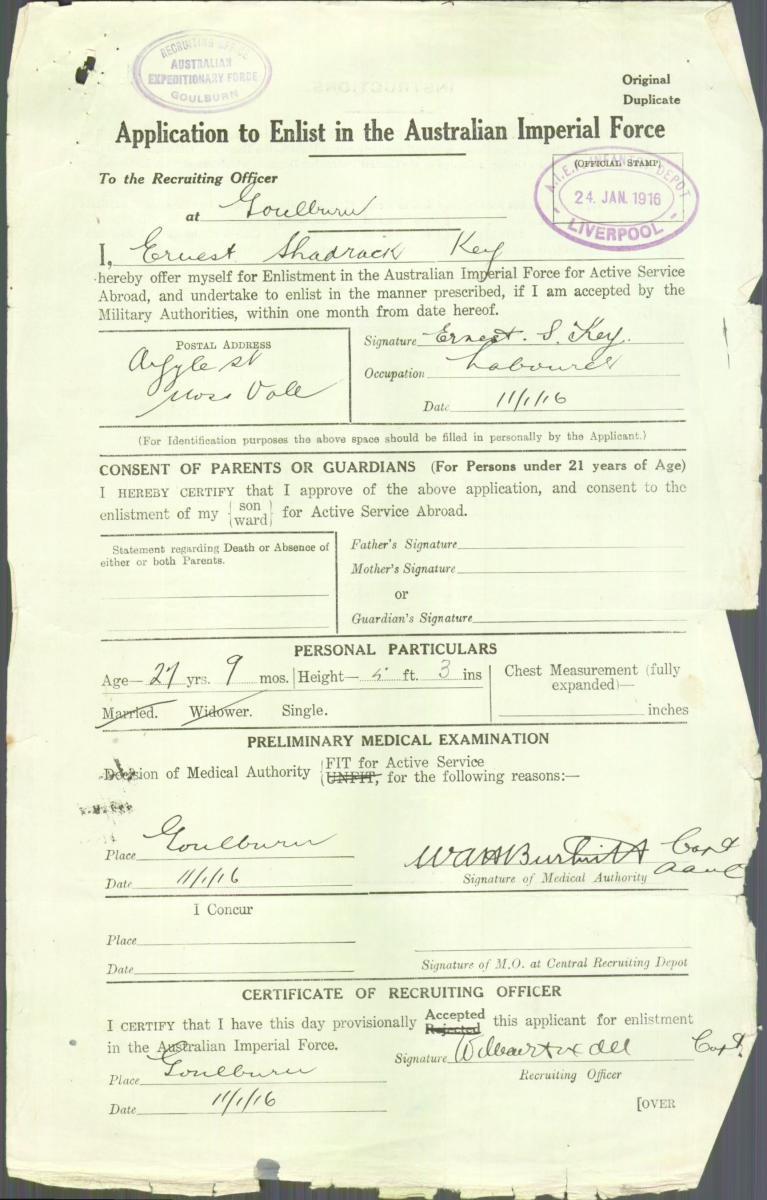 RECRUITING OFFICE
AUSTRALIAN
EXPEDITIONARY FORCE
GOULBURN
Original
Duplicate
Application to Enlist in the Australian Imperial Force
To the Recruiting Officer
(OFFICIAL STAMP)
A.I.F. INFANTRY DEPOT
24 JAN. 1916
LIVERPOOL
at Goulburn
I, Ernest Shadrack Key
hereby offer myself for Enlistment in the Australian Imperial Force for Active Service
Abroad, and undertake to enlist in the manner prescribed, if I am accepted by the
Military Authorities, within one month from date hereof.
POSTAL ADDRESS
Argyle st
Moss Vale
Signature Ernest. S. Key.
Occupation Labourer
Date 11/1/16
(For Identification purposes the above space should be filled in personally by the Applicant.)
CONSENT OF PARENTS OR GUARDIANS (For Persons under 21 years of Age)
I HEREBY CERTIFY that I approve of the above application, and consent to the
enlistment of my {son ward} for Active Service Abroad.
Statement regarding Death or Absence of
either or both Parents.
Father's Signature
Mother's Signature
or
Guardian's Signature
PERSONAL PARTICULARS
Age— 27 yrs. 9 mos. Height— 5 ft. 3 ins
Chest Measurement (fully
expanded)—
inches
Married. Widower. Single.
PRELIMINARY MEDICAL EXAMINATION
Decision of Medical Authority {FIT for Active Service
{UNFIT, for the following reasons:—
Place Goulburn
Date 11/1/16
Capt
Signature of Medical Authority
I Concur
Place
Date
Signature of M.O. at Central Recruiting Depot
CERTIFICATE OF RECRUITING OFFICER
I CERTIFY that I have this day provisionally Accepted Rejected this applicant for enlistment
in the Australian Imperial Force.
Signature Capt.
Recruiting Officer
Place Goulburn
Date 11/1/16
[OVER